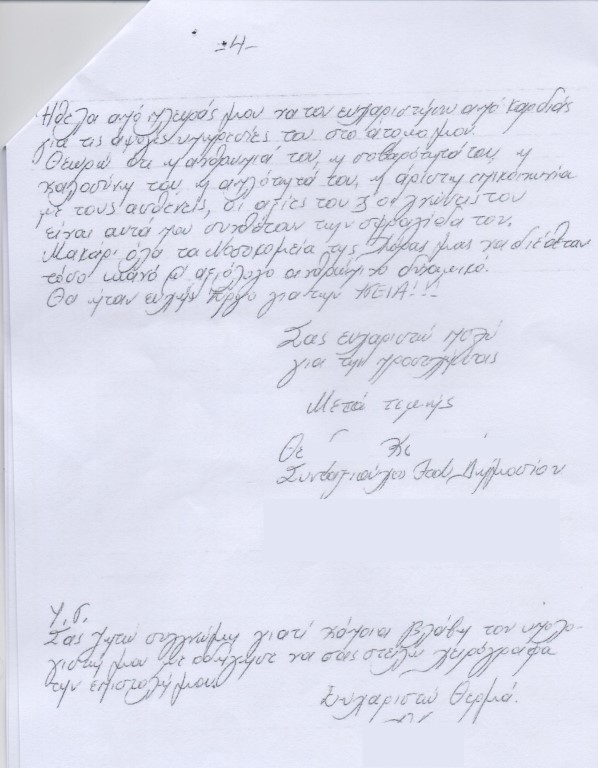 -4-
Ήθελα από πλευράς μου να τον ευχαριστήσω από καρδιάς
για τις άψογες υπηρεσίες του στο άτομό μου.
Θεωρώ ότι η ανθρωπιά του, η σοβαρότητά του, η
καλοσύνη του, η απλότητά του, η άριστη επικοινωνία
με τους ασθενείς, οι αξίες του & οι γνώσεις του
είναι αυτά που συνθέτουν την σφραγίδα του.
Μακάρι όλα τα Νοσοκομεία της Χώρας μας να διέθεταν
τόσο ικανό & αξιόλογο ανθρώπινο δυναμικό.
Θα ήταν ευχής έργο για την ΥΓΕΙΑ!!!
Σας ευχαριστώ πολύ
για την
Μετά τιμής
Συνταξιούχος Δημοσίου
Υ.Γ.
Σας ζητώ συγγνώμη γιατί κάποια βλάβη του υπολο-
γιστή μου με οδήγησε να σας στείλω χειρόγραφα
την επιστολή μου.
Ευχαριστώ Θερμά.